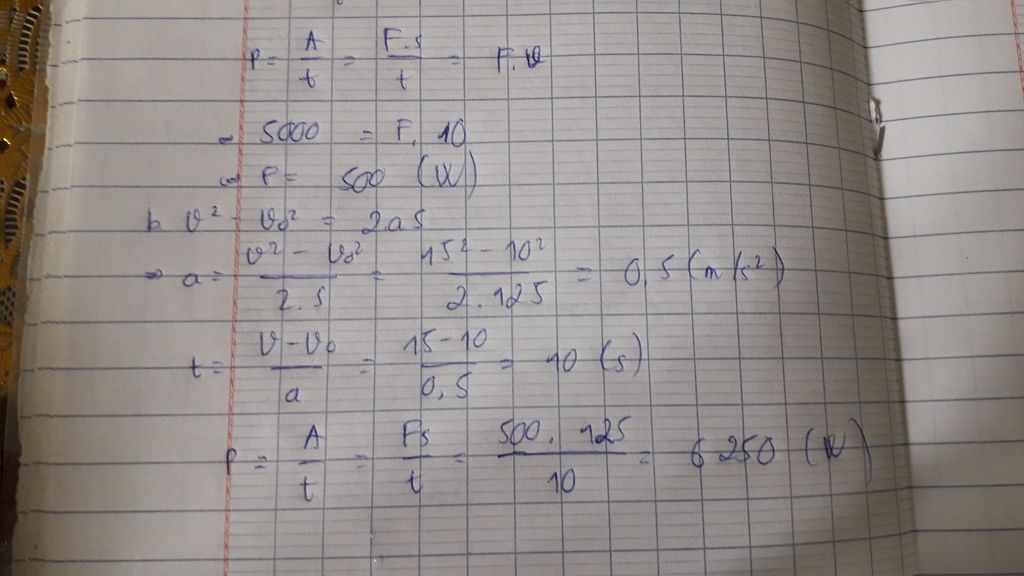 P = A/t = F.s/t = F.v
⇒ 5000 = F. 10
⇒ F = 500 (N)
b v² - v₀² = 2as
⇒ a = v² - v₀²/2.s = 15² - 10²/2.125 = 0,5 (m/s²)
t = v - v₀/a = 15 - 10/0,5 = 10 (s)
P = A/t = Fs/t = 500. 125/10 = 6250 (W)